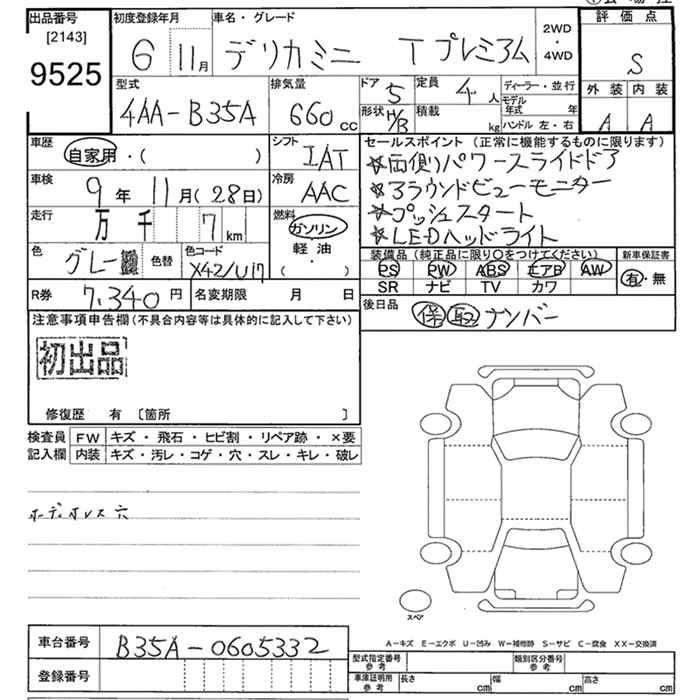 出品番号 初度登録年月 車名・グレード 2WD・4WD 評価点
[2143]
9525 6 11月 デリカミニ Tプレミアム S
型式 排気量 ドア 5 定員 4人 ディーラー・並行 外装 内装
4AA-B35A 660cc 形状 H/B 積載 kg モデル年式 年 A A
ハンドル 左・右
車歴 自家用・( ) シフト IAT セールスポイント(正常に機能するものに限ります)
☆両側パワースライドドア
車検 9年 11月(28日) 冷房 AAC ☆3ラウンドビューモニター
走行 万 千 7km 燃料 ガソリン ☆プッシュスタート
軽・油 ☆LEDヘッドライト
( ・ )
色 グレー 色替 色コード X42/U17 装備品(純正品に限り○をつけてください) 新車保証書
PS PW ABS エアB AW 有・無
SR ナビ TV カワ
R券 7,340円 名変期限 月 日 後日品 保 取 ナンバー
注意事項申告欄(不具合内容等は具体的に記入して下さい)
初出品
修復歴 有 〔箇所 〕
検査員 FW キズ・飛石・ヒビ割・リペア跡・×要
記入欄 内装 キズ・汚レ・コゲ・穴・スレ・キレ・破レ
ホーディホレス穴
スペア
A-キズ E-エクボ U-凹み W-補修跡 S-サビ C-腐食 XX-交換済
車台番号 B35A-0605332 型式指定番号 参考 類別区分番号 参考
登録番号 車庫証明用 参考 長さ cm 幅 cm 高さ cm